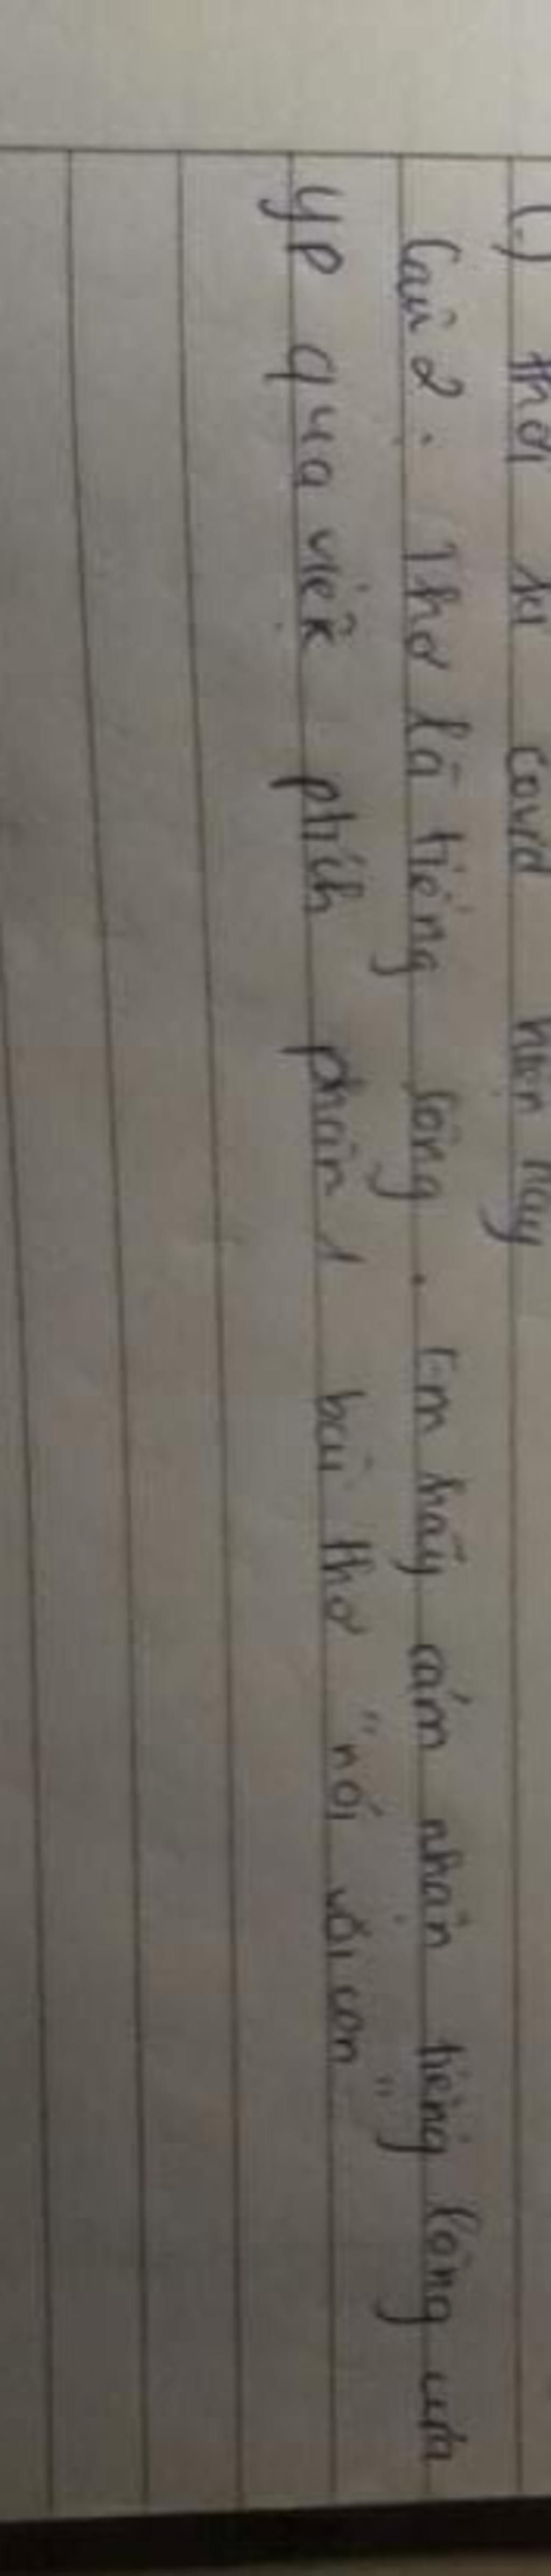 (.) thời kì covid hiện nay
Câu 2 : Thơ là tiếng lòng . Em hãy cảm nhận tiếng lòng của
YP qua việc phích phân 1 bài thơ "nói với con"